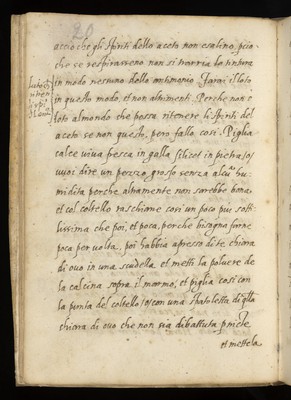 20
accio che gli spiriti dello aceto non esalino, p cio
che se respirasseno non si trarria la tintura
in modo nessuno dello antimonio. Farai il loto
in questo modo, et non altrimenti. Perche non e
loto al mondo che possa ritenere li spiriti del
aceto se non questo. pero fallo così. Piglia
calce viva fresca in
vuoi dire un pezzo grosso senza alcũ hu=
midita perche altramente non sarebbe bona:
et col coltello raschione così un poco pur sotti=
lissima che poi, et poca, perche bisogna farne
poca per volta, poi habbia apresso di te chiara
di ovo in una scudella, et metti la polvere de
la calcina sopra il marmo, et piglia così con
la punta del coltello, o con una spatoletta di q̃lla
chiara di ovo che non sia dibattuta
et mettela